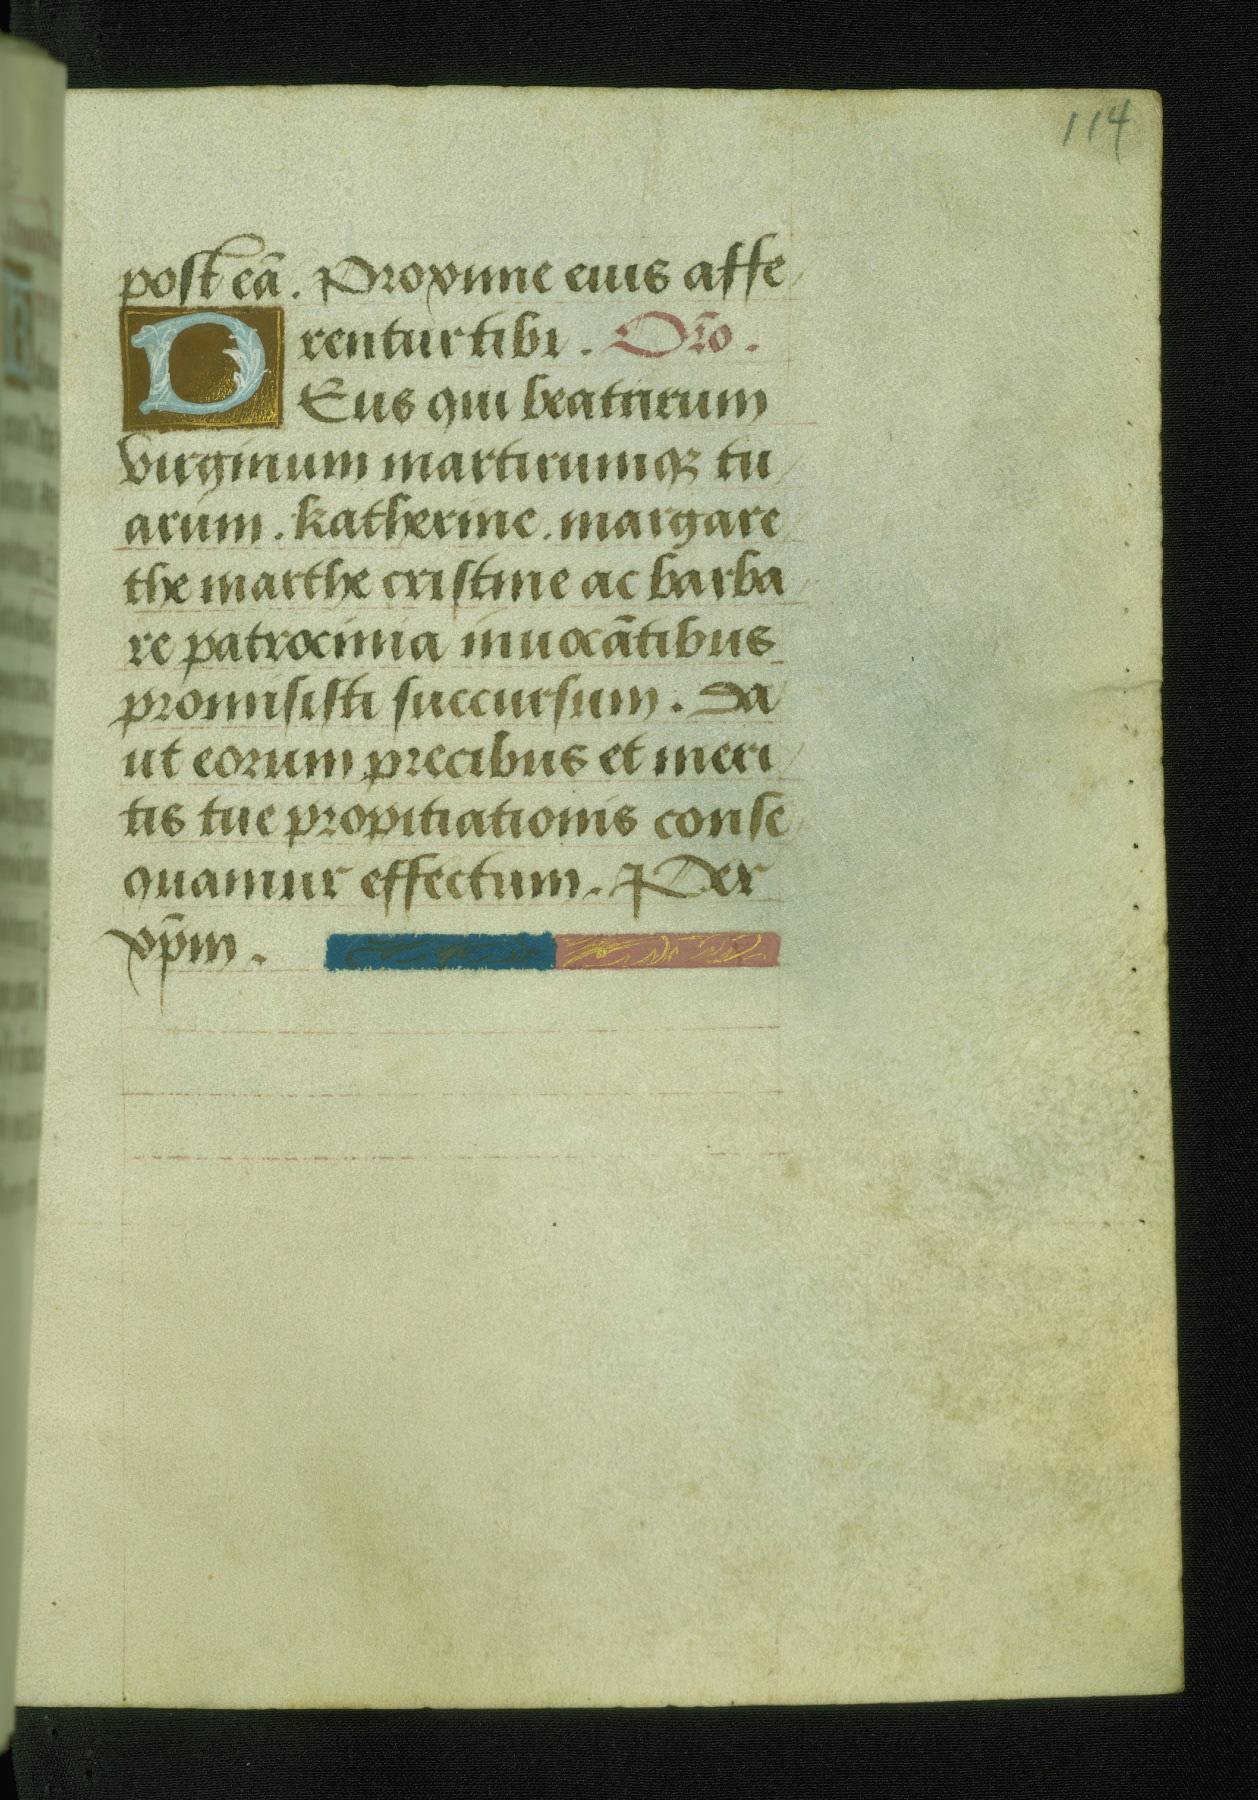 114
post eā. Proxime eius affe
renturtibi. Orō.
DEus qui beatarum
virginum martirumqꝫ tu
arum. katherine. margare
the marthe cristine ac barba
re patrocinia inuocātibus
promisisti succursum. Da
ut eorum precibus et meri
tis tue propitiationis conse
quamur effectum. Per
xp̄m.